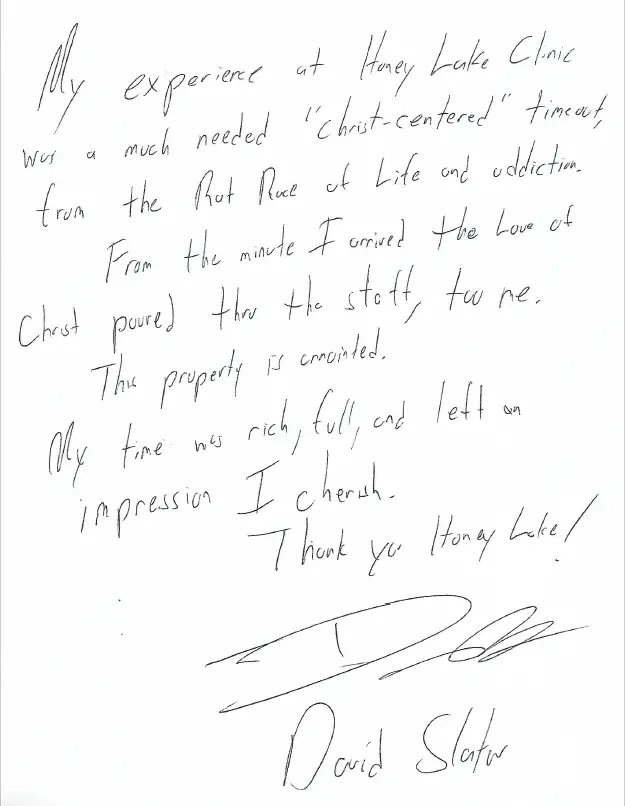 My experience at Honey Lake Clinic
was a much needed "christ-centered" timeout,
from the Rat Race of Life and addiction.
From the minute I arrived the Love of
Christ poured thru the staff, too me.
This property is annointed.
My time was rich, full, and left an
impression I cherish.
Thank you Honey Lake!
David Slater